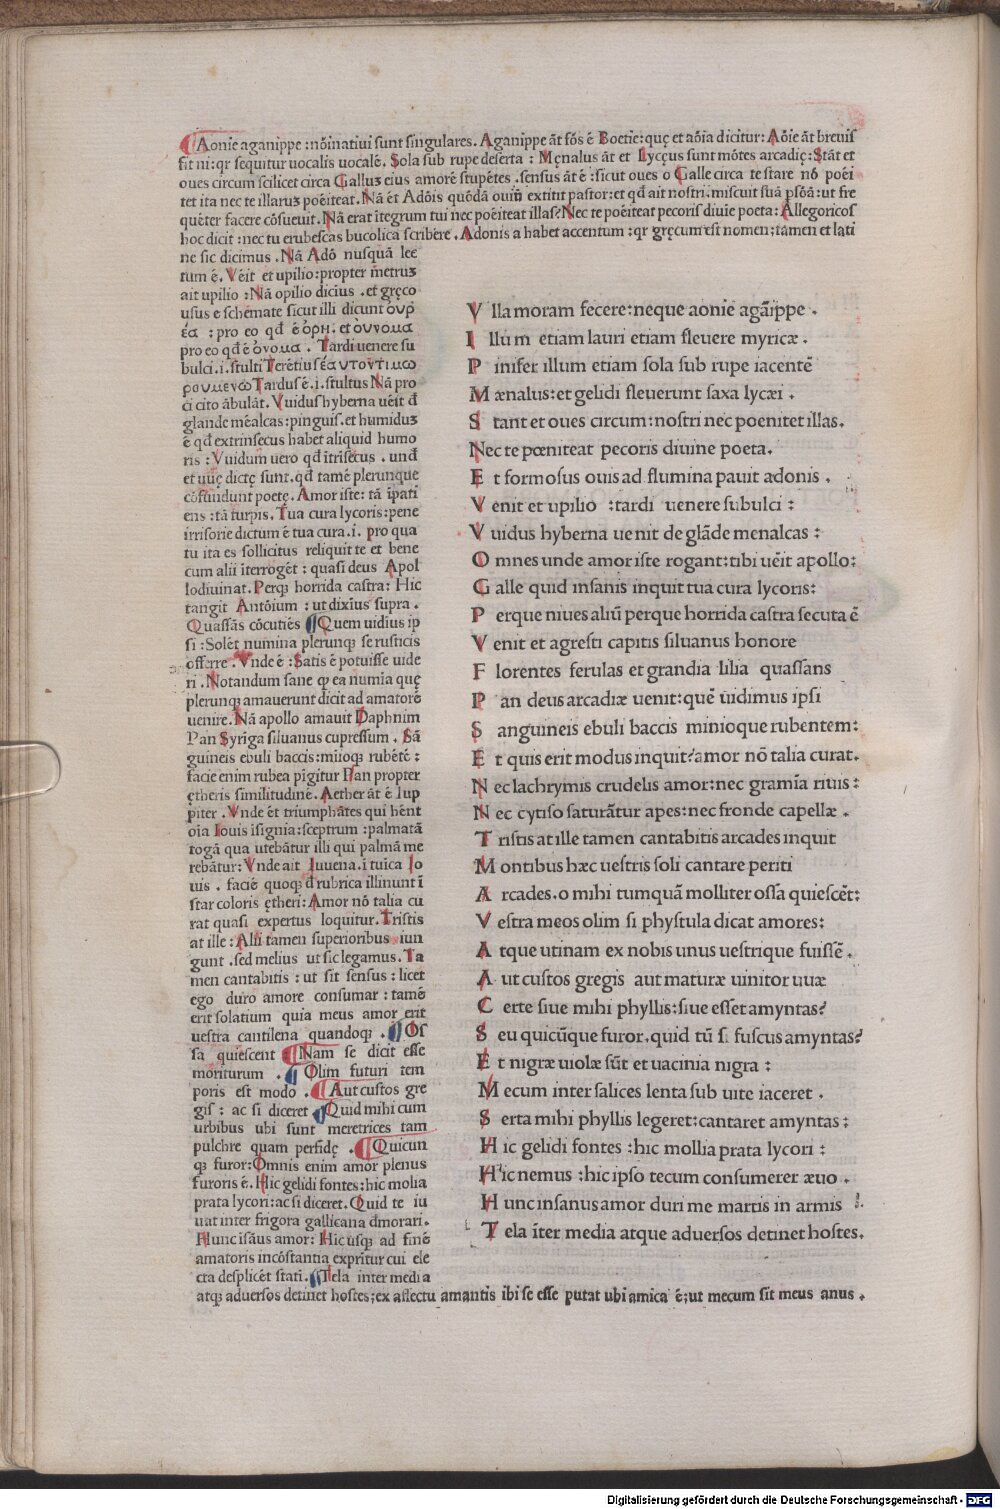 Aonie aganippe : nōinatiui sunt singulares. Aganippe āt fōs ē Boetię: quę et aōia dicitur: Aōie āt breuis
fit ni: qr sequitur uocalis uocalē. Sola sub rupe deserta : Męnalus āt et Lycęus sunt mōtes arcadię: Stāt et
oues circum scilicet circa Galluꝫ eius amorē stupētes .sensus āt ē :sicut oues o Galle circa te stare nō poēi
tet ita nec te illaruꝫ poēiteat. Nā ēt Adōis quōdā ouiū extitit pastor: et qđ ait nostri.miscuit suā psōā: ut fre
quēter facere cōsueuit. Nā erat ītegrum tui nec poēiteat illas? Nec te poēiteat pecoris diuie poeta: Allegoricos
hoc dicit : nec tu erubescas bucolica scribere . Adonis a habet accentum : qr gręcum est nomen; tamen et lati
ne sic dicimus . Nā Adō nusquā lee
tum ē. Vēit et upilio: propter metruꝫ
ait upilio : Nā opilio dicius . et gręco
usus e schēmate sicut illi dicunt ουρ
έα : pro eo qđ ē όρη. et ουνομα
pro eo qđ ē ὀνομα . Tardi uenere su
bulci .i. stulti Terētius εαυτοντιμω
ρουμενω Tardus ē .i. stultus Nā pro
ci cito ābulāt. Vuidus hyberna uēit đ
glande mēalcas: pinguis. et humiduꝫ
ē qđ extrinsecus habet aliquid humo
ris : Vuidum uero qđ ītrisecus . unđ
et uuę dictę sunt. qđ tamē plerunque
cōfundunt poetę. Amor iste: tā īpati
ens : tā turpis. Tua cura lycoris: pene
irrisorie dictum ē tua cura .i. pro qua
tu ita es sollicitus reliquit te et bene
cum alii īterrogēt : quasi deus Apol
lo diuinat. Perqꝫ horrida castra: Hic
tangit Antōium : ut dixīus supra .
Quassās cōcutiēs Quem uidius ip
si : Solēt numina plerunqꝫ se rusticis
offerre . Vnde ē : Satis ē potuisse uide
ri . Notandum sane qꝫ ea numia quę
plerunqꝫ amauerunt dicit ad amatorē
uenire. Nā apollo amauit Daphnim
Pan Syrīga siluanus cupressum . Sā
guineis ebuli baccis: miioqꝫ rubētē :
facie enim rubea pīgitur Pan propter
ętheris similitudinē. Aether āt ē Iup
piter . Vnde ēt triumphātes qui hēnt
oīa Iouis isignia: sceptrum : palmatā
togā qua utebātur illi qui palmā me
rebātur: Vnde ait Iuuena. ī tuica Io
uis . faciē quoqꝫ đ rubrica illinunt ī
star coloris ętheri: Amor nō talia cu
rat quasi expertus loquitur. Tristis
at ille : Alii tamen superioribus iun
gunt . sed melius ut sic legamus. Ta
men cantabitis : ut sit sensus : licet
ego duro amore consumar : tamē
erit solatium quia meus amor erit
uestra cantilena quandoqꝫ . Os
sa quiescent Nam se dicit esse
moriturum . Olim futuri tem
poris est modo . Aut custos gre
gis : ac si diceret Quid mihi cum
urbibus ubi sunt meretrices tam
pulchre quam perfidę . Quicun
qꝫ furor: Omnis enim amor plenus
furoris ē. Hic gelidi fontes: hic molia
prata lycori: ac si diceret. Quid te iu
uat inter frigora gallicana đmorari.
Hunc isāus amor: Hic usqꝫ ad finē
amatoris incōstantia exprītur cui ele
cta desplicēt stati. Tela inter media
atqꝫ aduersos detinet hostes; ex affectu amantis ibi se esse putat ubi amica ē; ut mecum sit meus anus .
V lla moram fecere: neque aonie agāippe .
I llum etiam lauri etiam fleuere myricæ .
P inifer illum etiam sola sub rupe iacentē
M ænalus: et gelidi fleuerunt saxa lycæi .
S tant et oues circum: nostri nec poenitet illas.
Nec te pœniteat pecoris diuine poeta.
E t formosus ouis ad flumina pauit adonis .
V enit et upilio :tardi uenere subulci :
V uidus hyberna uenit de glāde menalcas :
O mnes unde amor iste rogant: tibi uēit apollo:
G alle quid insanis inquit tua cura lycoris:
P erque niues aliū perque horrida castra secuta ē
V enit et agresti capitis siluanus honore
F lorentes ferulas et grandia lilia quassans
P an deus arcadiæ uenit: quē uidimus ipsi
S anguineis ebuli baccis minioque rubentem:
E t quis erit modus inquit? amor nō talia curat.
N ec lachrymis crudelis amor: nec gramīa riuis :
N ec cytiso saturātur apes: nec fronde capellæ .
T ristis at ille tamen cantabitis arcades inquit
M ontibus hæc uestris soli cantare periti
A rcades. o mihi tumquā molliter ossa quiescēt:
V estra meos olim si phystula dicat amores:
A tque utinam ex nobis unus uestrique fuissē .
A ut custos gregis aut maturæ uinitor uuæ
C erte siue mihi phyllis: siue esset amyntas?
S eu quicūque furor. quid tū si fuscus amyntas?
E t nigræ uiolæ sūt et uacinia nigra :
M ecum inter salices lenta sub uite iaceret .
S erta mihi phyllis legeret: cantaret amyntas :
H ic gelidi fontes :hic mollia prata lycori :
H ic nemus :hic ipso tecum consumerer æuo .
H unc insanus amor duri me martis in armis
T ela īter media atque aduersos detinet hostes.
Digitalisierung gefördert durch die Deutsche Forschungsgemeinschaft - DFG